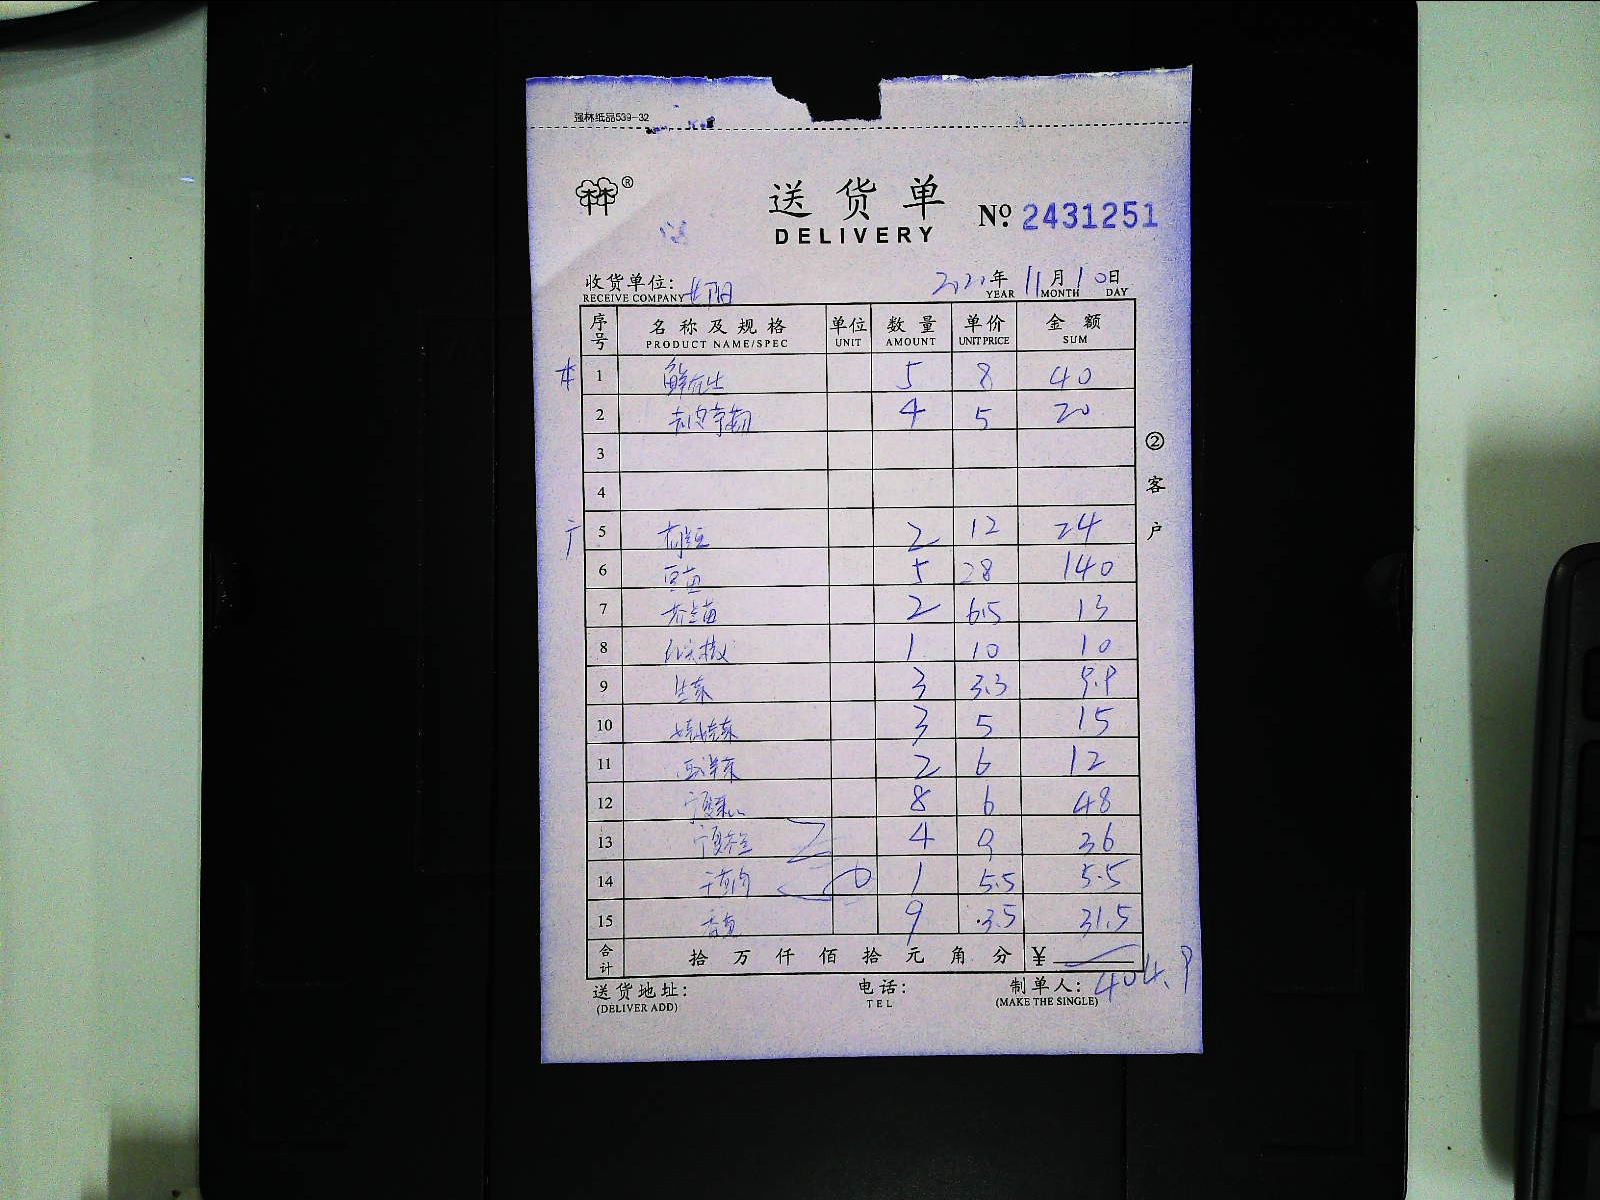 强林纸品539-32
林 ®
送货单
DELIVERY
No. 2431251
收货单位: 2020年11月10日
RECEIVE COMPANY YEAR MONTH DAY
序号 名称及规格 单位 数量 单价 金额
PRODUCT NAME/SPEC UNIT AMOUNT UNIT PRICE SUM
1 5 8 40
2 4 5 20
3
4
5 2 12 24
6 豆苗 5 28 140
7 芥兰苗 2 6.5 13
8 1 10 10
9 生菜 3 3.3 9.9
10 娃娃菜 3 5 15
11 西洋菜 2 6 12
12 宁夏菜心 8 6 48
13 宁夏芥兰 4 9 36
14 1 5.5 5.5
15 9 3.5 31.5
合计 拾万仟佰拾元角分 ¥ 404.9
送货地址: 电话: 制单人:
(DELIVER ADD) TEL (MAKE THE SINGLE)
② 客户